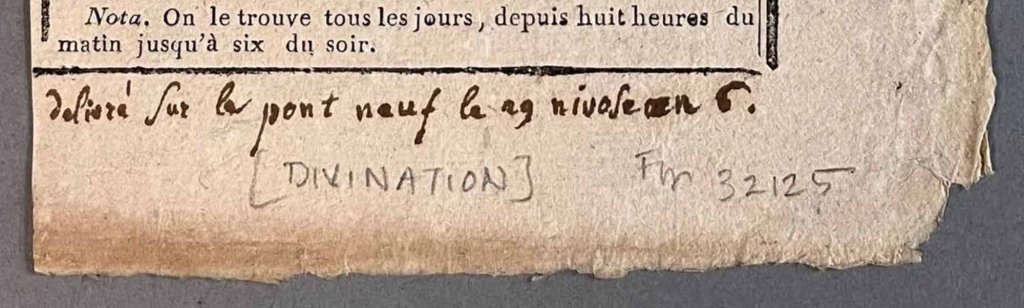 Nota. On le trouve tous les jours, depuis huit heures du
matin jusqu'à six du soir.
delivré sur le pont neuf le 29 nivose an 6.
[DIVINATION] 32125